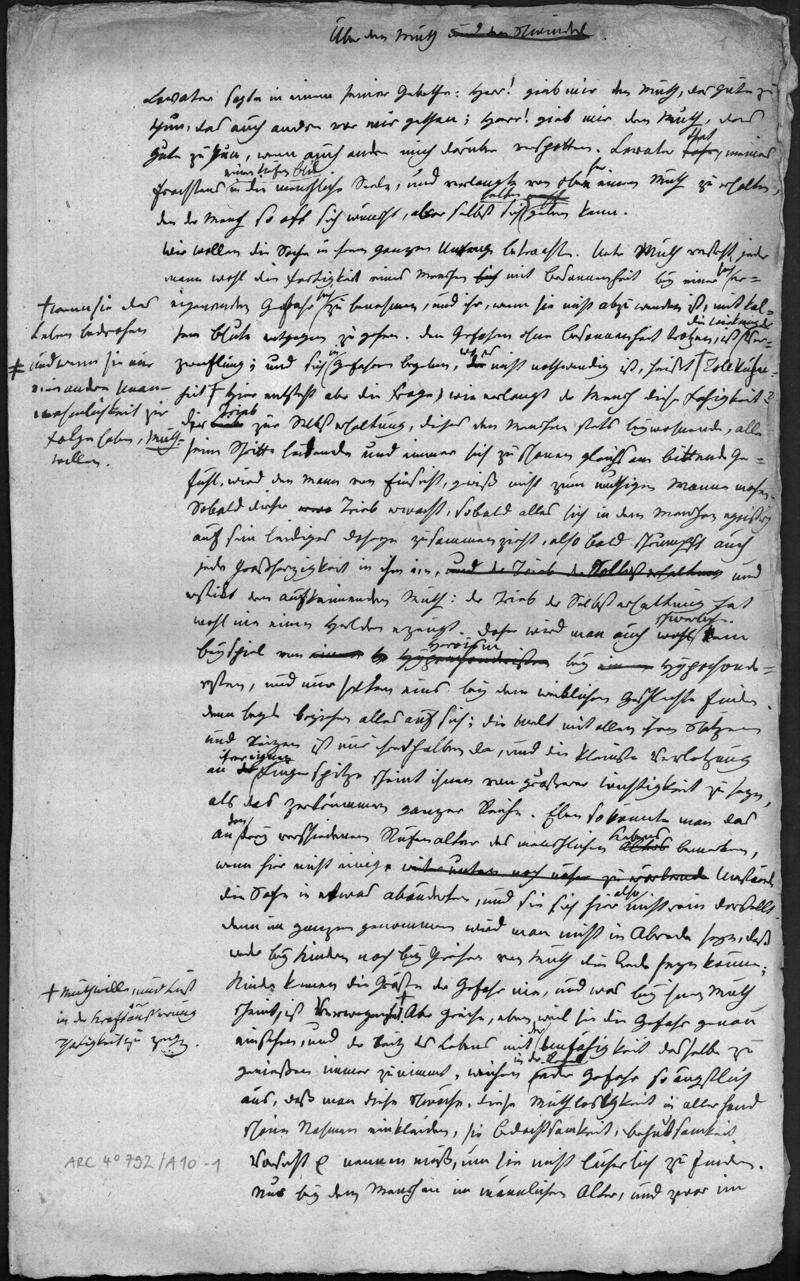 Über den Muth und den Schwindel.
Lavater sagte in einem seiner Gebethe: Herr! gieb mir den Muth, das Gute zu
thun, das auch andere vor mir gethan; Herr! gieb mir den Muth, das
Gute zu thun, wenn auch andere mich darüber verspotten. Lavater that
einen tiefen Blick
in die menschliche Seele, und verlangte von oben einen Muth zu erhalten,
den der Mensch so oft sich wünscht, aber selbst sich geben kann.
Wir wollen die Sache in ihrem ganzen Umfang betrachten. Unter Muth versteht jeder
mann wohl die Fertigkeit eines Menschen sich mit Besonnenheit bey einer
Gefahr zu benehmen, und ihr, wenn sie nicht abzuwenden ist, mit kal-
tem Blute entgegen zu gehen. Den Gefahren ohne Besonnenheit trotzen, ist Ver-
zweiflung; und sich Gefahren begeben, nicht nothwendig ist, heißt Tollkühn-
heit. Hier entsteht aber die Frage, wie erlangt der Mensch diese Fähigkeit?
der Trieb zur Selbsterhaltung, dieses dem Menschen stets beywohnende, alle
seine Schritte leitende und immer sich zu schonen gleichsam bittende Ge-
fühl, wird den Mann von Einsicht, gewiß nicht zum muthigen Manne machen.
Sobald dieser Trieb erwacht, sobald alles sich in dem Menschen egoistisch
auf sein leidiges zusammenzieht, alsobald schrumpft auch
jede Großherzigkeit in ihm ein, und der Trieb der Selbsterhaltung und
erstikt den aufkeimenden Muth: der Trieb der Selbsterhaltung hat
wohl nie einen Helden erzeugt. Daher wird man auch schwerlich ein
Beyspiel von Heroism bey Hypochondri-
sten, und nur selten eins bey dem weiblichen Geschlechte finden.
denn beyde beziehen alles auf sich; die Welt mit allen ihren Schätzen
und Reizen ist nur ihrethalben da, und die kleinste Verletzung
an ihrer eigenen Fingerspitze scheint ihnen von größerer Wichtigkeit zu seyn,
als das zertrümmern ganzer Reiche. Eben so könnte man das
an den drey verschiedenen Stufenalter des menschlichen Lebens bemerken,
wenn hier nicht einige Umstände
die Sache in etwas abänderten, und sie sich hier also nicht rein darstellt.
denn im ganzen genommen wird man nicht in Abrede seyn, daß
weder bey Kindern noch bey Greisen von Muth die Rede seyn könne;
Kinder kennen die Größe der Gefahr nie, und was bey ihnen Muth
scheint, ist Verwegenheit. Aber Greise, eben weil sie die Gefahr genau
einsehen, und der Reitz des Lebens mit der Unfähigkeit dasselbe zu
genießen immer zunimmt, weichen in der Regel jeder Gefahr so ängstlich
aus, daß man diese Schwäche, diese Muthlosigkeit in allerhand
schöne Nahmen einkleiden, sie Bedachtsamkeit, Behutsamkeit
Vorsicht nennen muß, um sie nicht lächerlich zu finden.
Nur bey dem Menschen im männlichen Alter, und zwar im
wenn sie das
Leben bedrohen
und wenn sie nur
eine andere Unan-
nehmlichkeit zur
Folge haben, Muth-
willen.
Muthwille, und Lust
in der Kraftäußerung
Thätigkeit zu
ARC 4° 792/A10-1